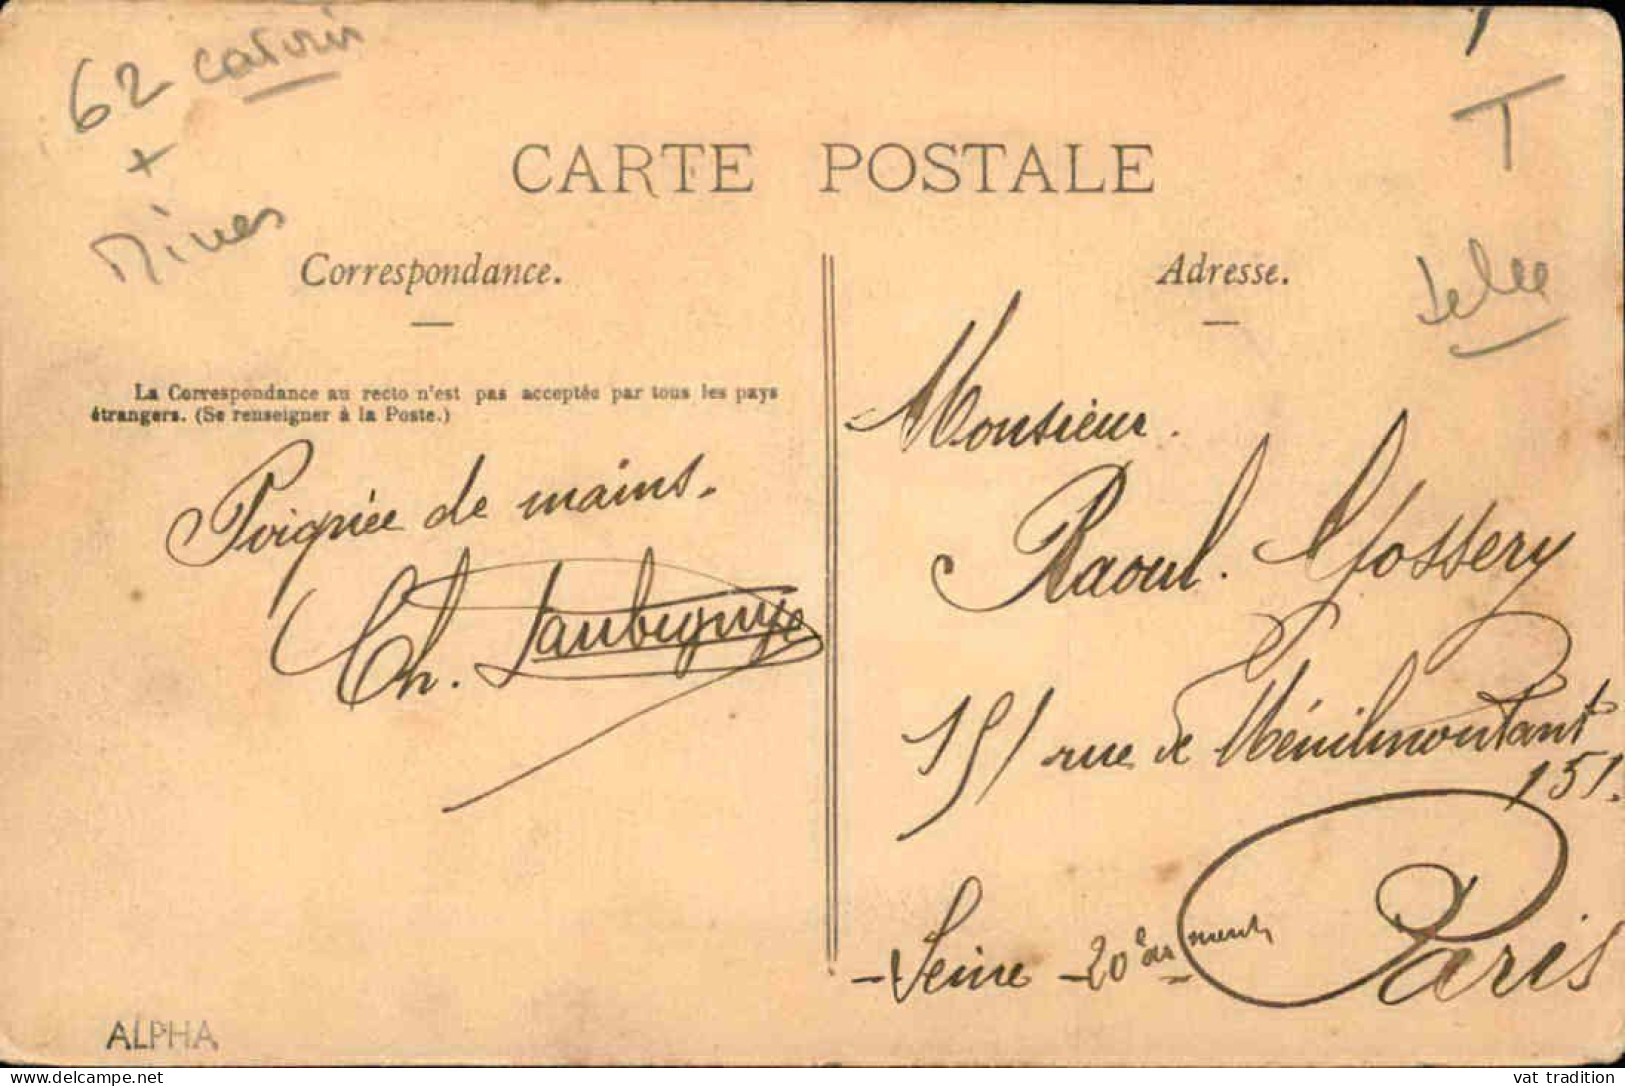 62 carvin
+
Mines
T
CARTE POSTALE
Correspondance.
Adresse.
La Correspondance au recto n'est pas acceptée par tous les pays
étrangers. (Se renseigner à la Poste.)
Poignée de mains.
Ch. Laubignye
Monsieur.
Raoul. Gossery
151 rue de Ménilmontant
151.
- Seine - 20e
Paris
ALPHA
vat tradition